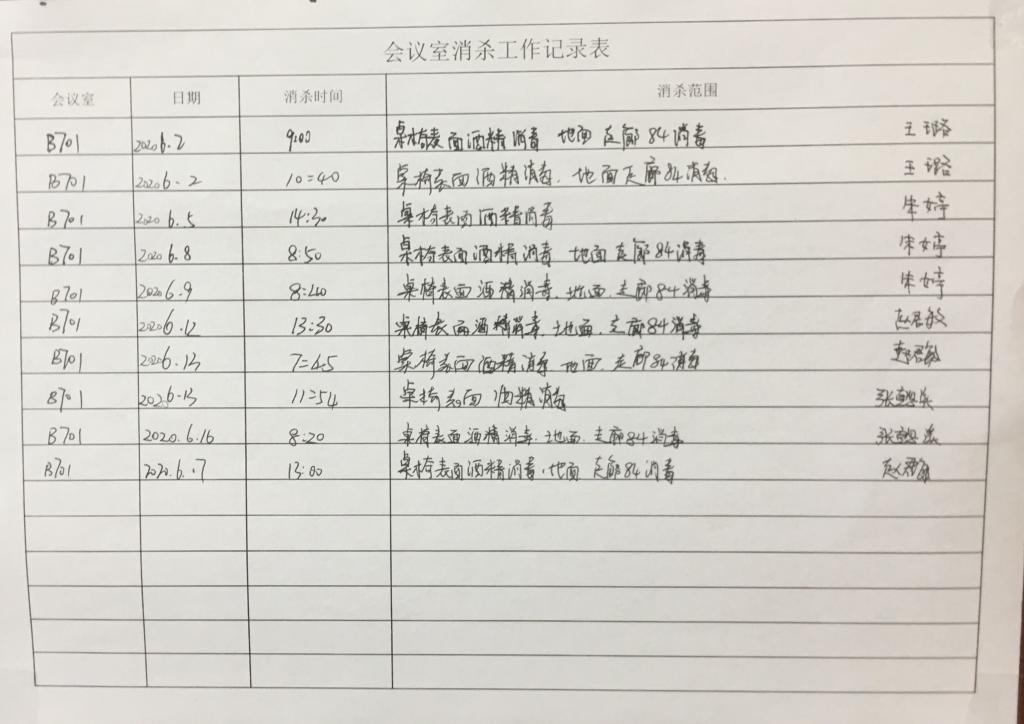 会议室消杀工作记录表
会议室 日期 消杀时间 消杀范围
B701 2020 6.2 9:00 桌椅表面酒精消毒 地面 走廊84消毒 王璐
B701 2020 6.2 10:40 桌椅表面酒精消毒. 地面走廊84消毒. 王璐
B701 2020 6.5 14:30 桌椅表面酒精消毒 朱婷
B701 2020 6.8 8:50 桌椅表面酒精消毒 地面 走廊84消毒 朱婷
B701 2020 6.9 8:40 桌椅表面酒精消毒. 地面. 走廊84消毒 朱婷
B701 2020 6.12 13:30 桌椅表面酒精消毒. 地面. 走廊84消毒 赵君敏
B701 2020 6.13 7:45 桌椅表面酒精消毒 地面. 走廊84消毒 赵君敏
B701 2020 6.13 11:54 桌椅表面 酒精消毒
B701 2020.6.16 8:20 桌椅表面酒精消毒. 地面. 走廊84消毒
B701 2020.6.17 13:00 桌椅表面酒精消毒. 地面 走廊84消毒 赵君敏